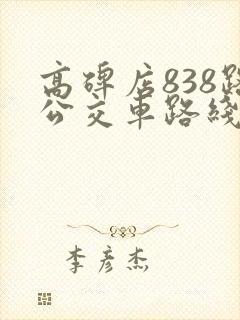 高碑店838路
公交车路线
李彦杰